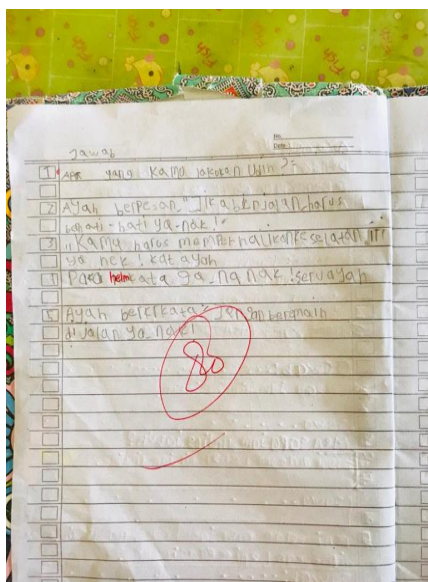 No.
Date
Jawab
1 Apa yang kamu lakukan Udin?"
2 Ayah berpesan "Jika berjalan harus
hati-hati ya-nak!"
3 "Kamu harus
ya nek! kat ayah
4 Pada helm kata ga-na nak! seru ayah
5 Ayah berkata" Jangan bermain
di jalan ya-nak!
80